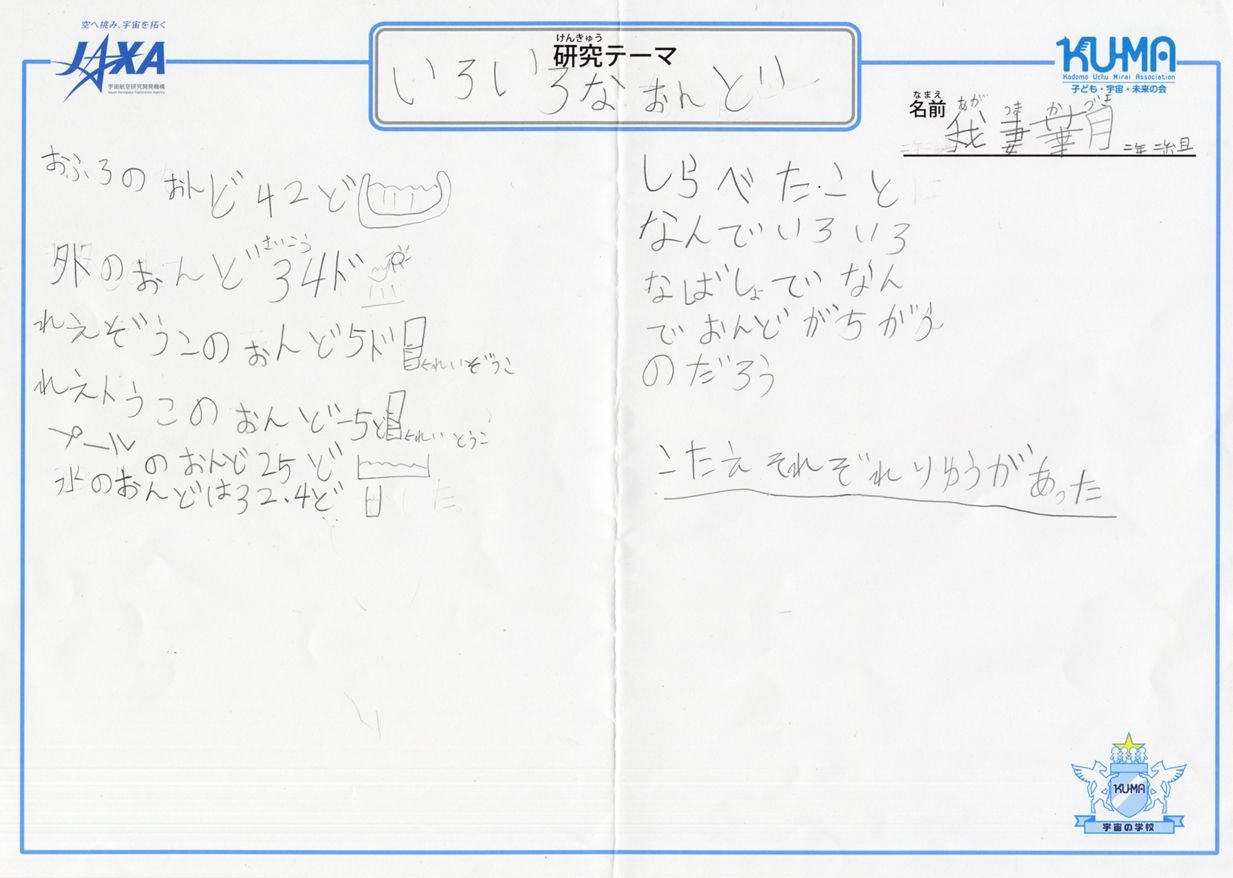 空へ挑み、宇宙を拓く
JAXA
宇宙航空研究開発機構
Japan Aerospace Exploration Agency
けんきゅう
研究テーマ
いろいろなおんど
KU-MA
Kodomo Uchu Mirai Association
子ども・宇宙・未来の会
なまえ
名前
あが つま か づき
我妻華月 二年
おふろのおんど42ど
さいこう
外のおんど34ド
れえぞうこのおんど5ド
れいぞうこ
れえトうこのおんど-5ど
れいとうこ
プールのおんど25ど
水のおんどは32.4ど
しらべたこと
なんでいろいろ
なばしょでなん
でおんどがちがう
のだろう
こたえそれぞれりゆうがあった
KU-MA
宇宙の学校